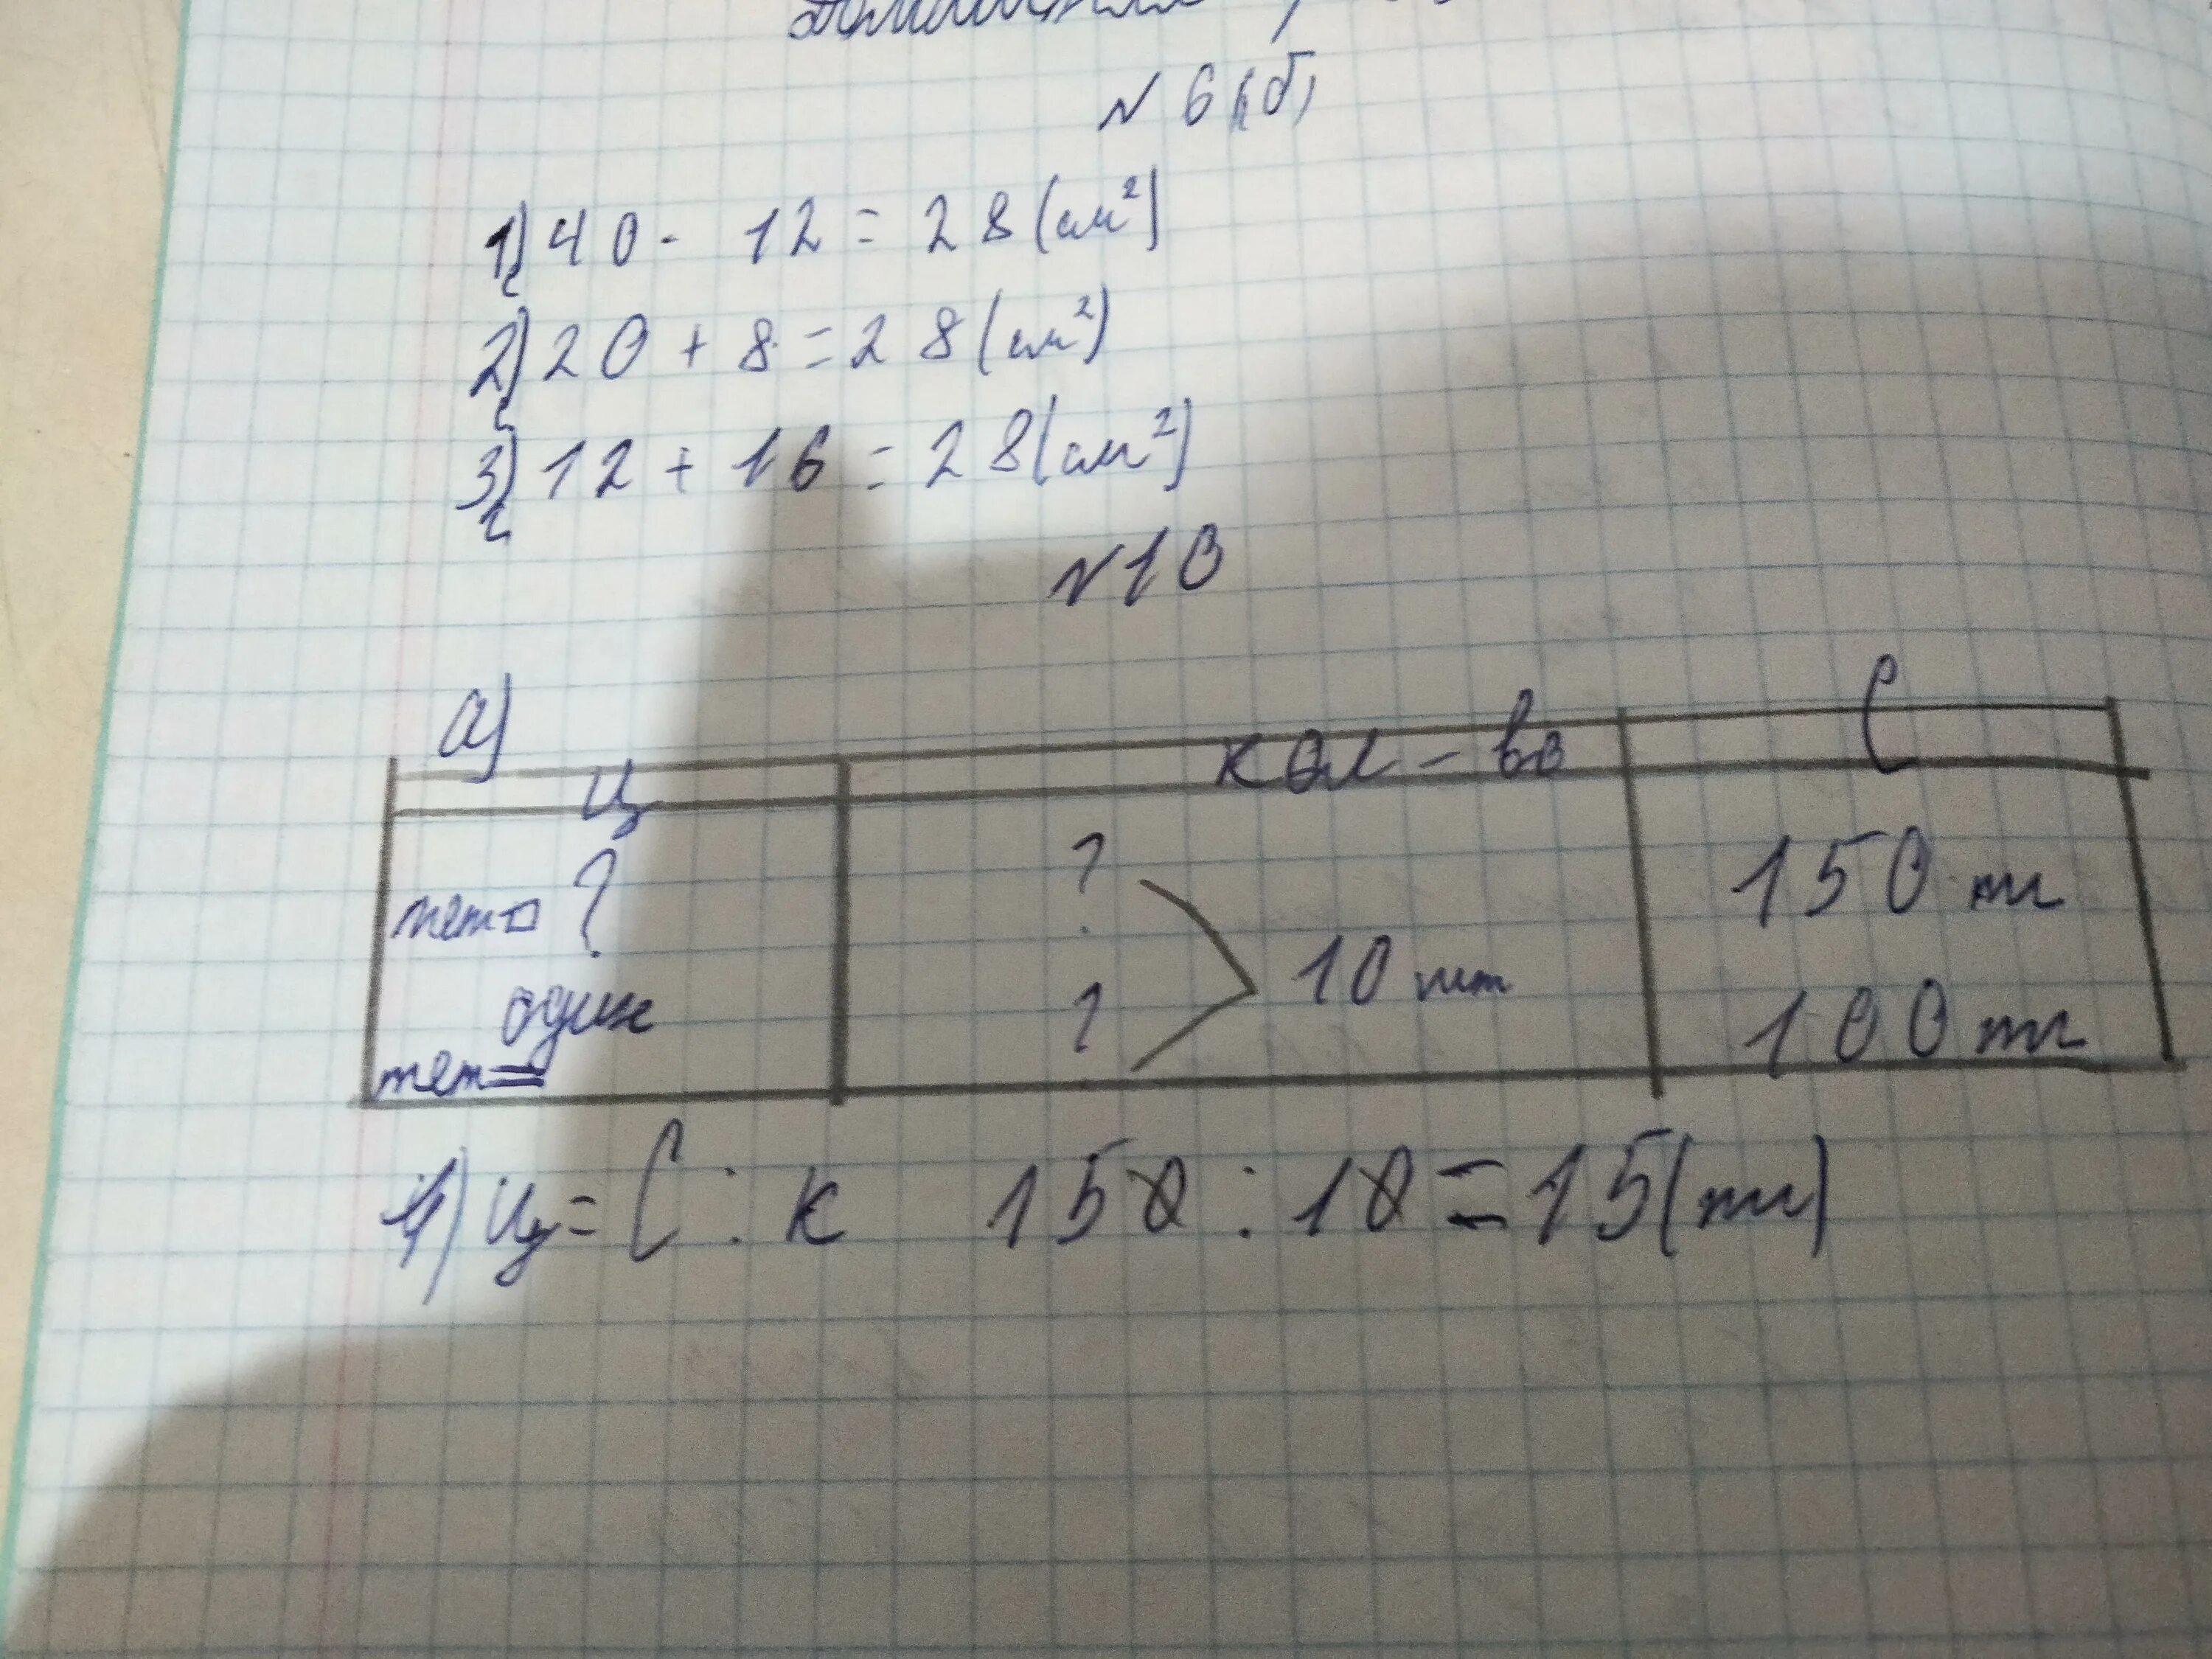 № 6 (б)
1) 40 - 12 = 28 (см²)
2) 20 + 8 = 28 (см²)
3) 12 + 16 = 28 (см²)
№10
а)
ц кол-во С
тет□ ? ? 150 тг
10 шт
один ? 100 тг
тет=
1) Ц = С : к 150 : 10 = 15 (тг)